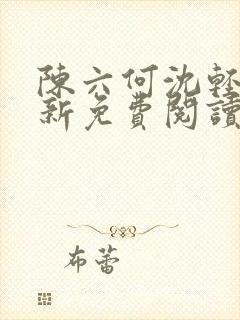 陳六何沈輕
新免費閱讀
布蕾